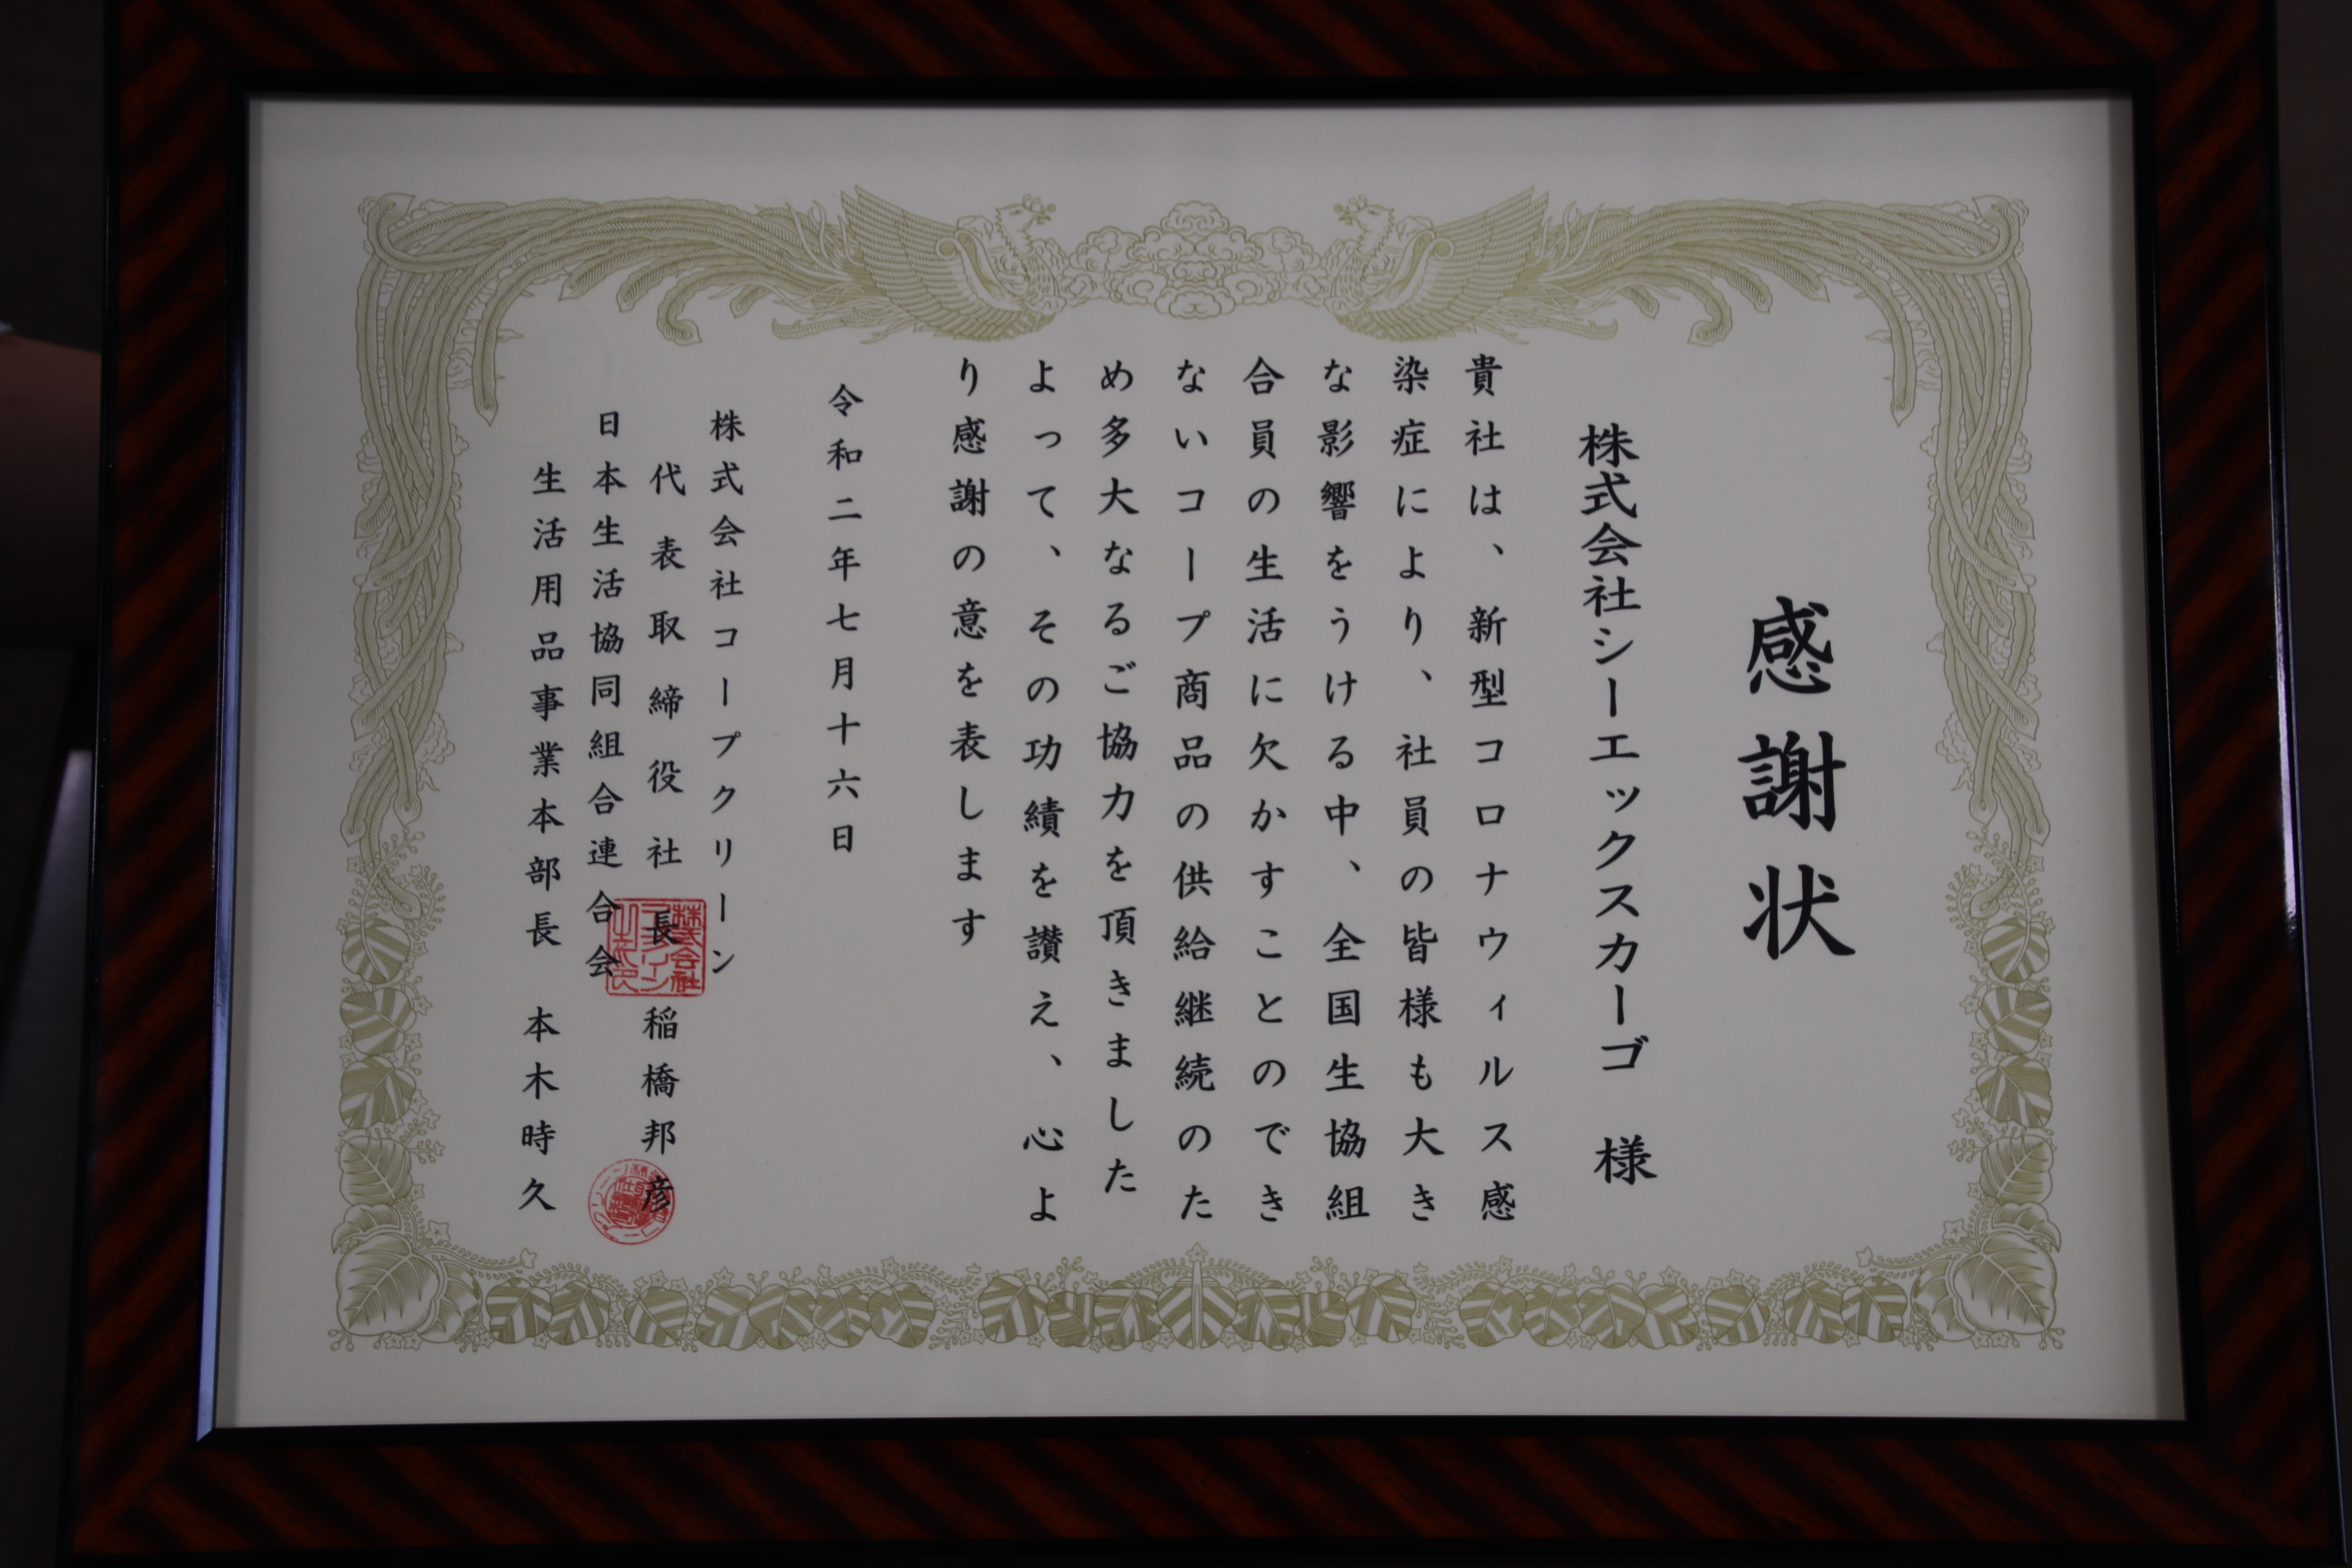 感謝状
株式会社シーエックスカーゴ 様
貴社は、新型コロナウィルス感
染症により、社員の皆様も大き
な影響をうける中、全国生協組
合員の生活に欠かすことのでき
ないコープ商品の供給継続のた
め多大なるご協力を頂きました
よって、その功績を讃え、心よ
り感謝の意を表します
令和二年七月十六日
株式会社コープクリーン
代表取締役社長 稲橋邦彦
日本生活協同組合連合会
生活用品事業本部長 本木時久